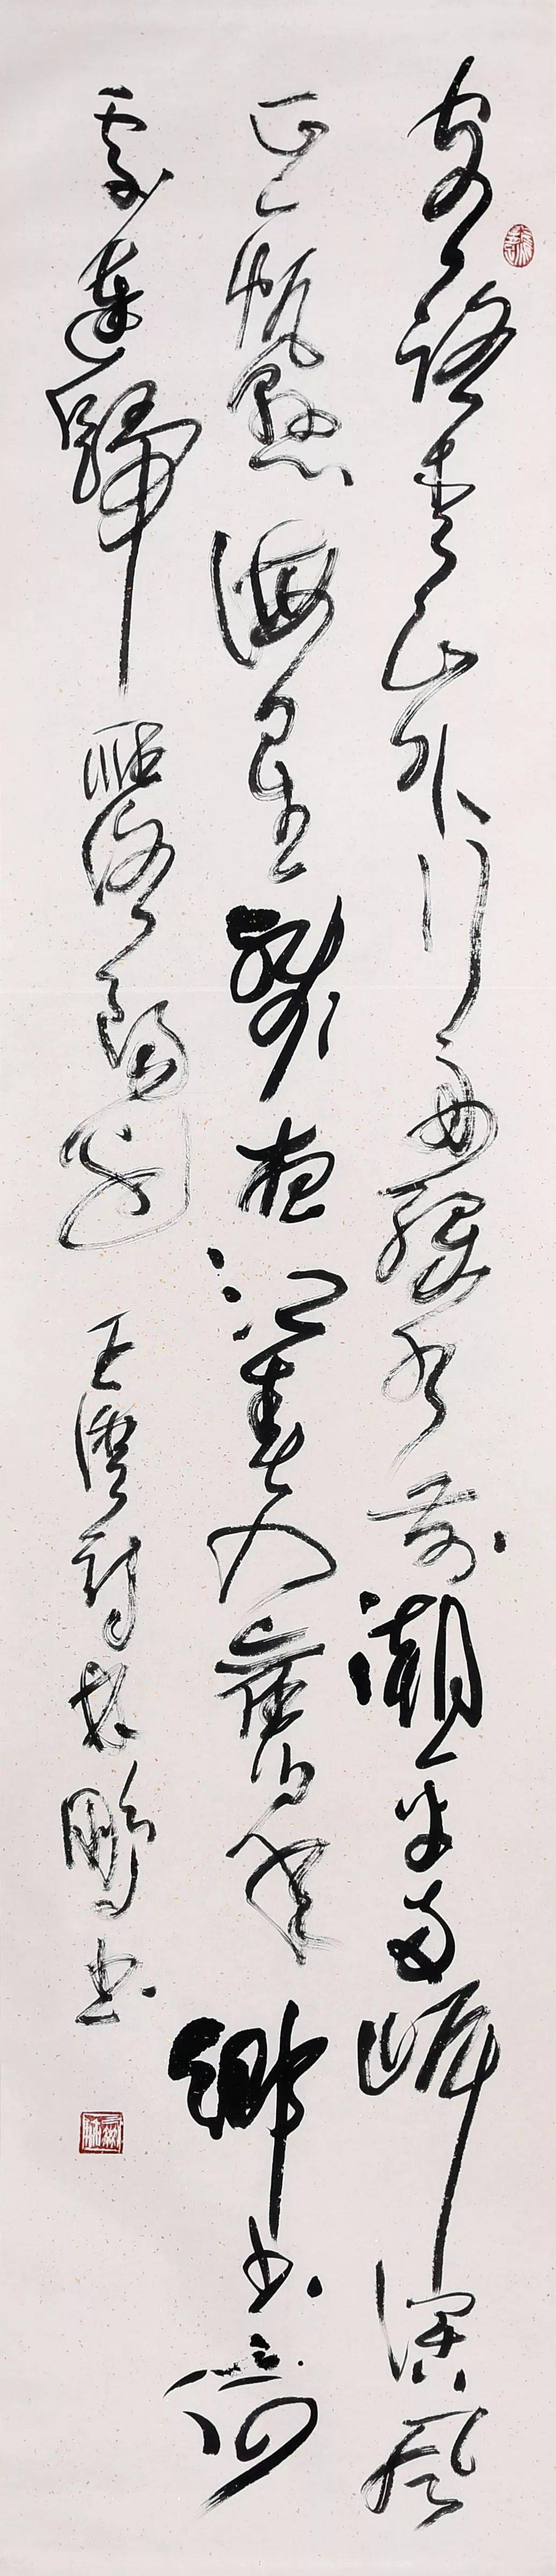 客路青山外行舟綠水前潮平兩岸闊風
正一帆懸海日生殘夜江春入舊年鄉書何
處達歸雁洛陽邊 王灣詩 林鵬書